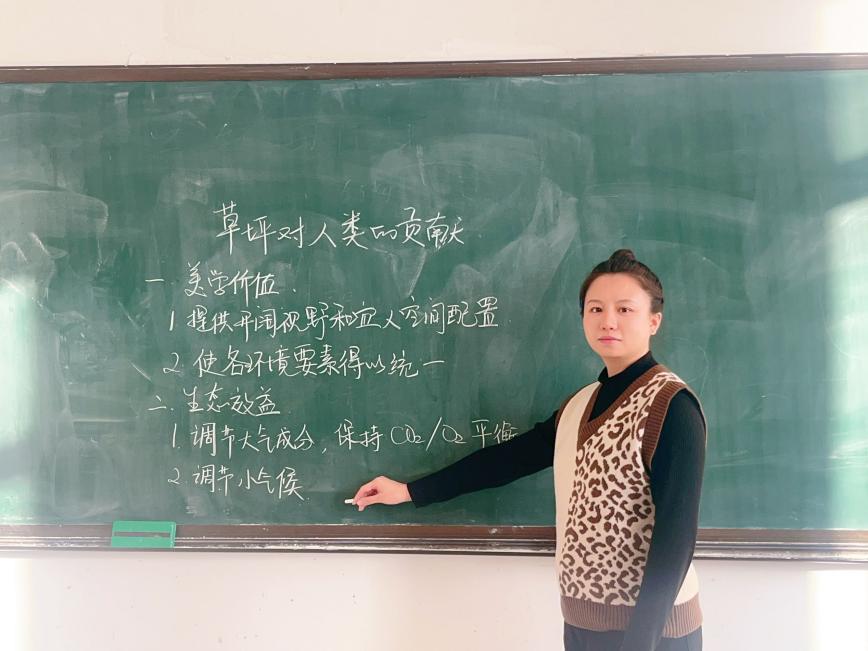 草坪对人类的贡献
一. 美学价值.
1. 提供开阔视野和宜人空间配置
2. 使各环境要素得以统一
二. 生态效益
1. 调节大气成分, 保持 CO₂/O₂ 平衡
2. 调节小气候